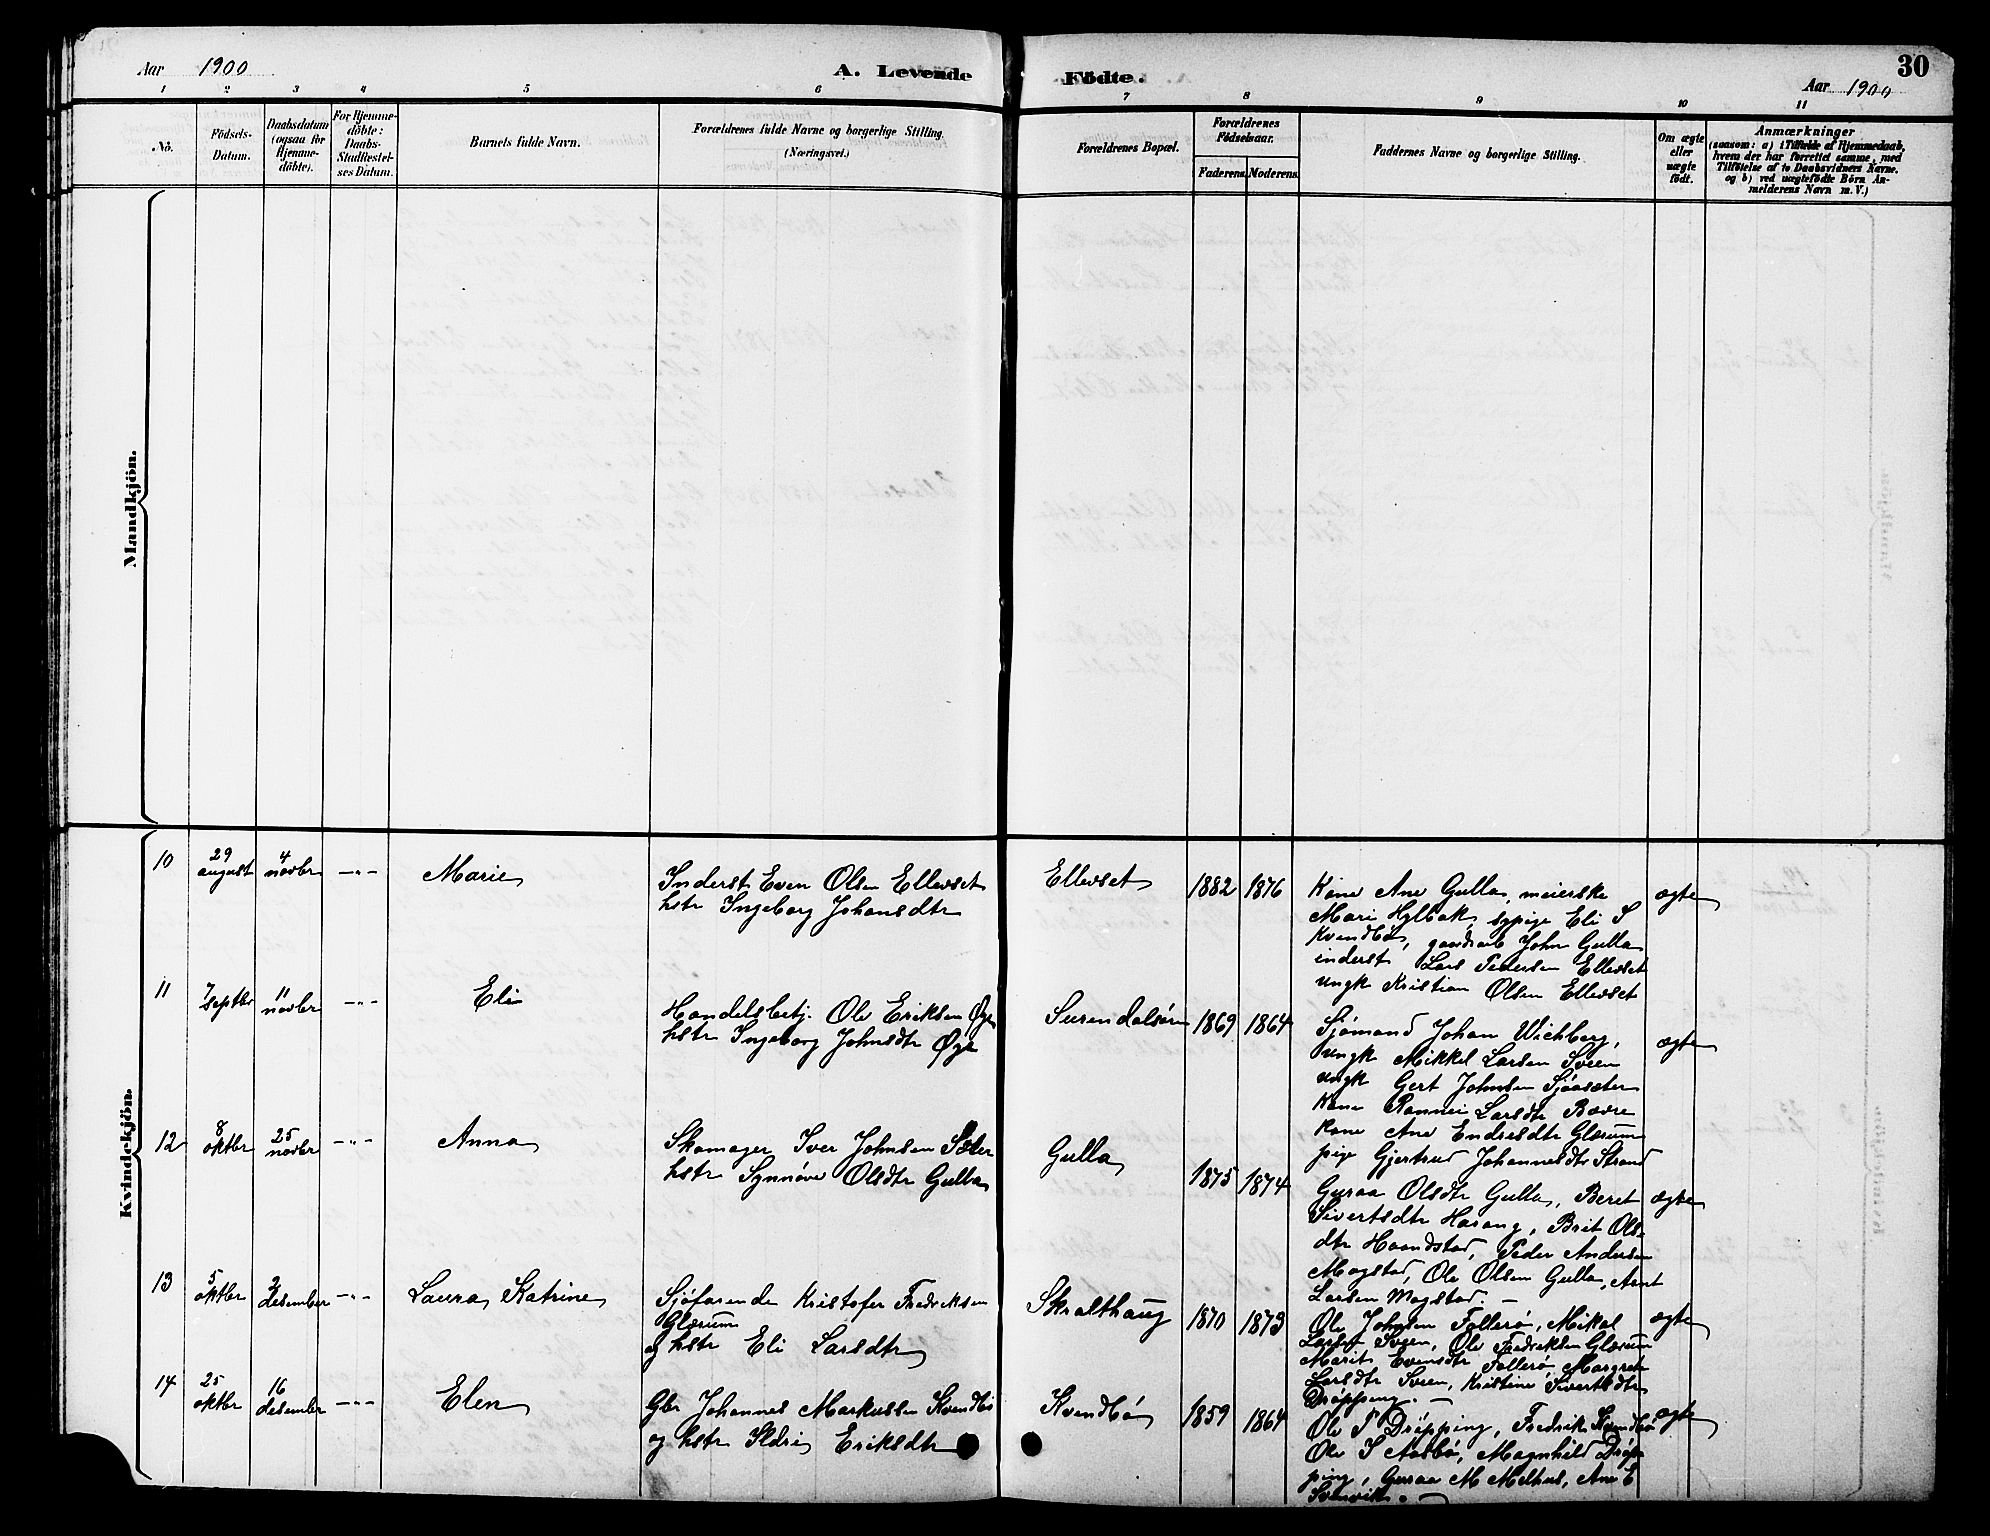 30
Aar 1900
A. Levende Födte.
Aar 1900
1 2 3 4 5 6 7 8 9 10 11
No.
Födsels-Datum.
Daabsdatum (ogsaa for Hjemme-döbte).
For Hjemme-döbte: Daabs-Stadfæstel-ses Datum.
Barnets fulde Navn.
Forældrenes fulde Navne og borgerlige Stilling.
(Næringsvei.)
Forældrenes Bopæl.
Forældrenes Födselsaar.
Faderens. Moderens.
Faddernes Navne og borgerlige Stilling.
Om ægte eller uægte födt.
Anmærkninger
(saasom: a) i Tilfælde af Hjemmedaab,
hvem der har forrettet samme, med
Tilföielse af to Daabsvidners Navne.
og b) ved uægtefödte Börn An-
melderens Navn m. V.)
Mandkjön.
Kvindekjön.
10
29 august
4 novbr
-"-
Marie
Inderst Even Olsen Ellevset
hstr Ingeborg Johansdtr
Ellevset
1882 1876
Kone Ane Gulla, meierske
Mari Hylbak, sypige Eli S
Kvendbø, gaardarb John Gulla
inderst Lars Pedersen Ellevset
ungk Kristian Olsen Ellevset
ægte
11
7 septbr
11 novbr
-"-
Eli
Handelsbetj. Ole Eriksen Øye
hstr Ingeborg Johnsdtr Øye
Surendalsøren
1869 1864
Sjømand Johan Wichberg,
ungk Mikkel Larsen Sveen
ungk Gert Johnsen Sjøasæter
Kone Rannei Larsdtr Bævre
kone Ane Endresdtr Glærum
pige Gjertrud Johannesdtr Strand
ægte
12
8 oktbr
25 novbr
-"-
Anna
Skomager Iver Johnsen Sæter
hstr Synnøve Olsdtr Gulla
Gulla
1875 1874
Guraa Olsdtr Gulla, Beret
Sivertsdtr Harang, Brit Ols-
dtr Haandstad, Peder Andersen
Mogstad, Ole Olsen Gulla, Arnt
Larsen Mogstad. –
ægte
13
5 oktbr
2 desember
-"-
Laura Katrine
Sjøfarende Kristofer Fredriksen
Glærum
og hstr Eli Larsdtr
Skralthaug
1870 1873
Ole Johnsen Follerø, Mikal
Larsen Sveen, Ole Fredriksen Glærum
Marit Evensdtr Follerø, Margrete
Larsdtr Sveen, Kristine Sivertsdtr
Drøpping. –
ægte
14
25 oktbr
16 desember
-"-
Elen
Gbr Johannes Markussen Kvendbø
og hstr Ildri Eriksdtr
Kvendbø
1859 1864
Ole T Drøpping, Fredrik Kvendbø
Ole S Aasbø, Magnhild Drøp-
ping, Guraa M Melhus, Ane E
ægte